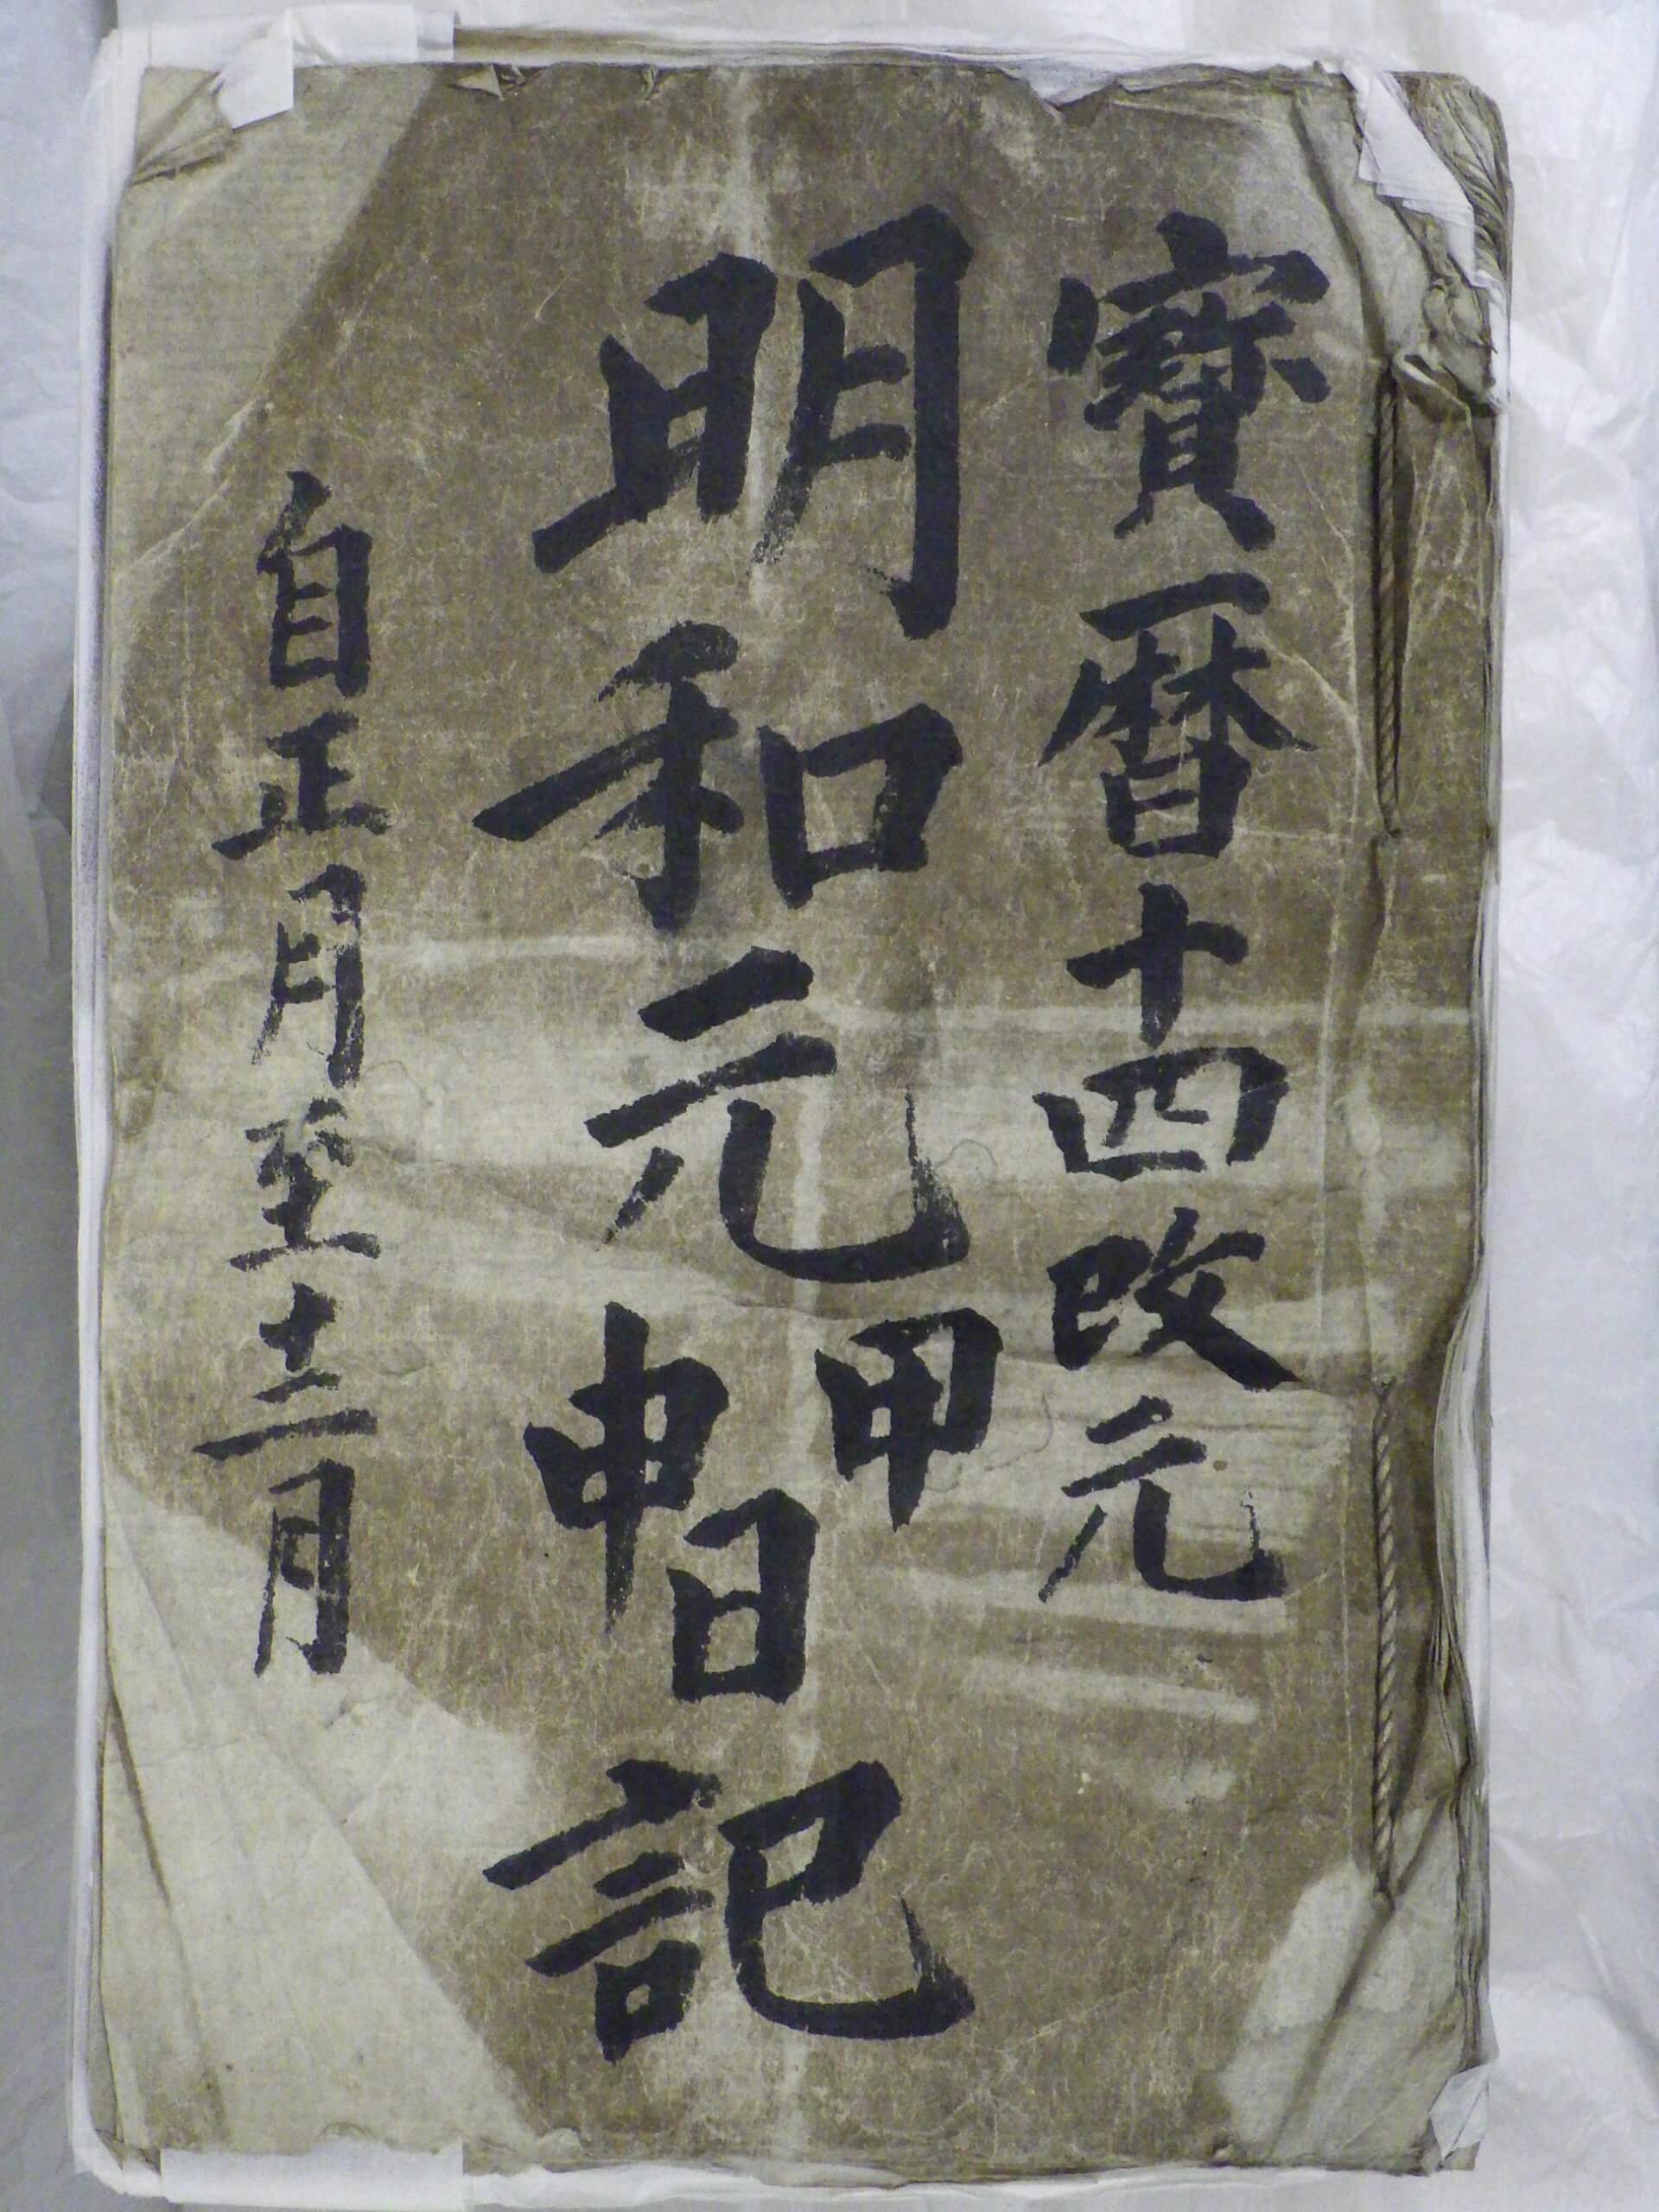 寳暦十四改元
明和元甲申日記
自正月至十二月